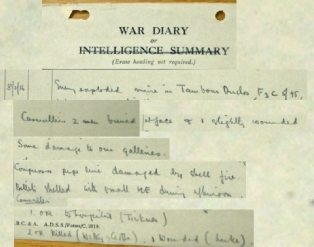 WAR DIARY
OR
INTELLIGENCE SUMMARY
(Erase heading not required.)
Enemy exploded mine in Tambour Duclos,
Casualties 2 men buried at face & 1 slightly wounded
Some damage to our galleries.
Compressor pipe line damaged by shell fire.
shelled with small HE during afternoon
Casualties
1. OR to hospital (Sickness)
A.D.S.S./Forms/C. 2118.
2 OR killed 1 Wounded